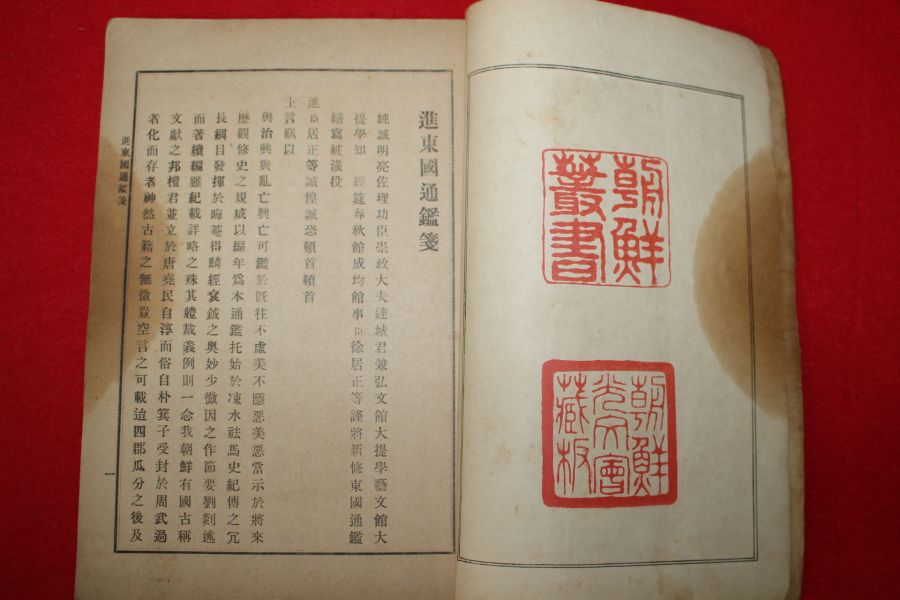 朝鮮
叢書
朝鮮
光文會
藏板
進東國通鑑箋
純誠明亮佐理功臣崇政大夫達城君兼弘文館大提學藝文館大
提學知 經筵春秋館成均館事臣徐居正等謹將新修東國通鑑
繕寫粧潢投
進臣居正等誠惶誠恐頓首頓首
上言竊以
與治興與亂亡興亡可鑑於旣往不虛美不隱惡美惡當示於將來
歷觀修史之規咸以編年爲本通鑑托始於涑水祛馬史紀傳之冗
長綱目發揮於晦菴得麟經袞鉞之奧妙少微因之作節要劉剡述
而著續編雖紀載詳略之殊其軆裁義例則一念我朝鮮有國古稱
文獻之邦檀君並立於唐堯民自淳而俗自朴箕子受封於周武過
者化而存者神然古籍之無徵豈空言之可載迨四郡瓜分之後及
進東國通鑑箋
一